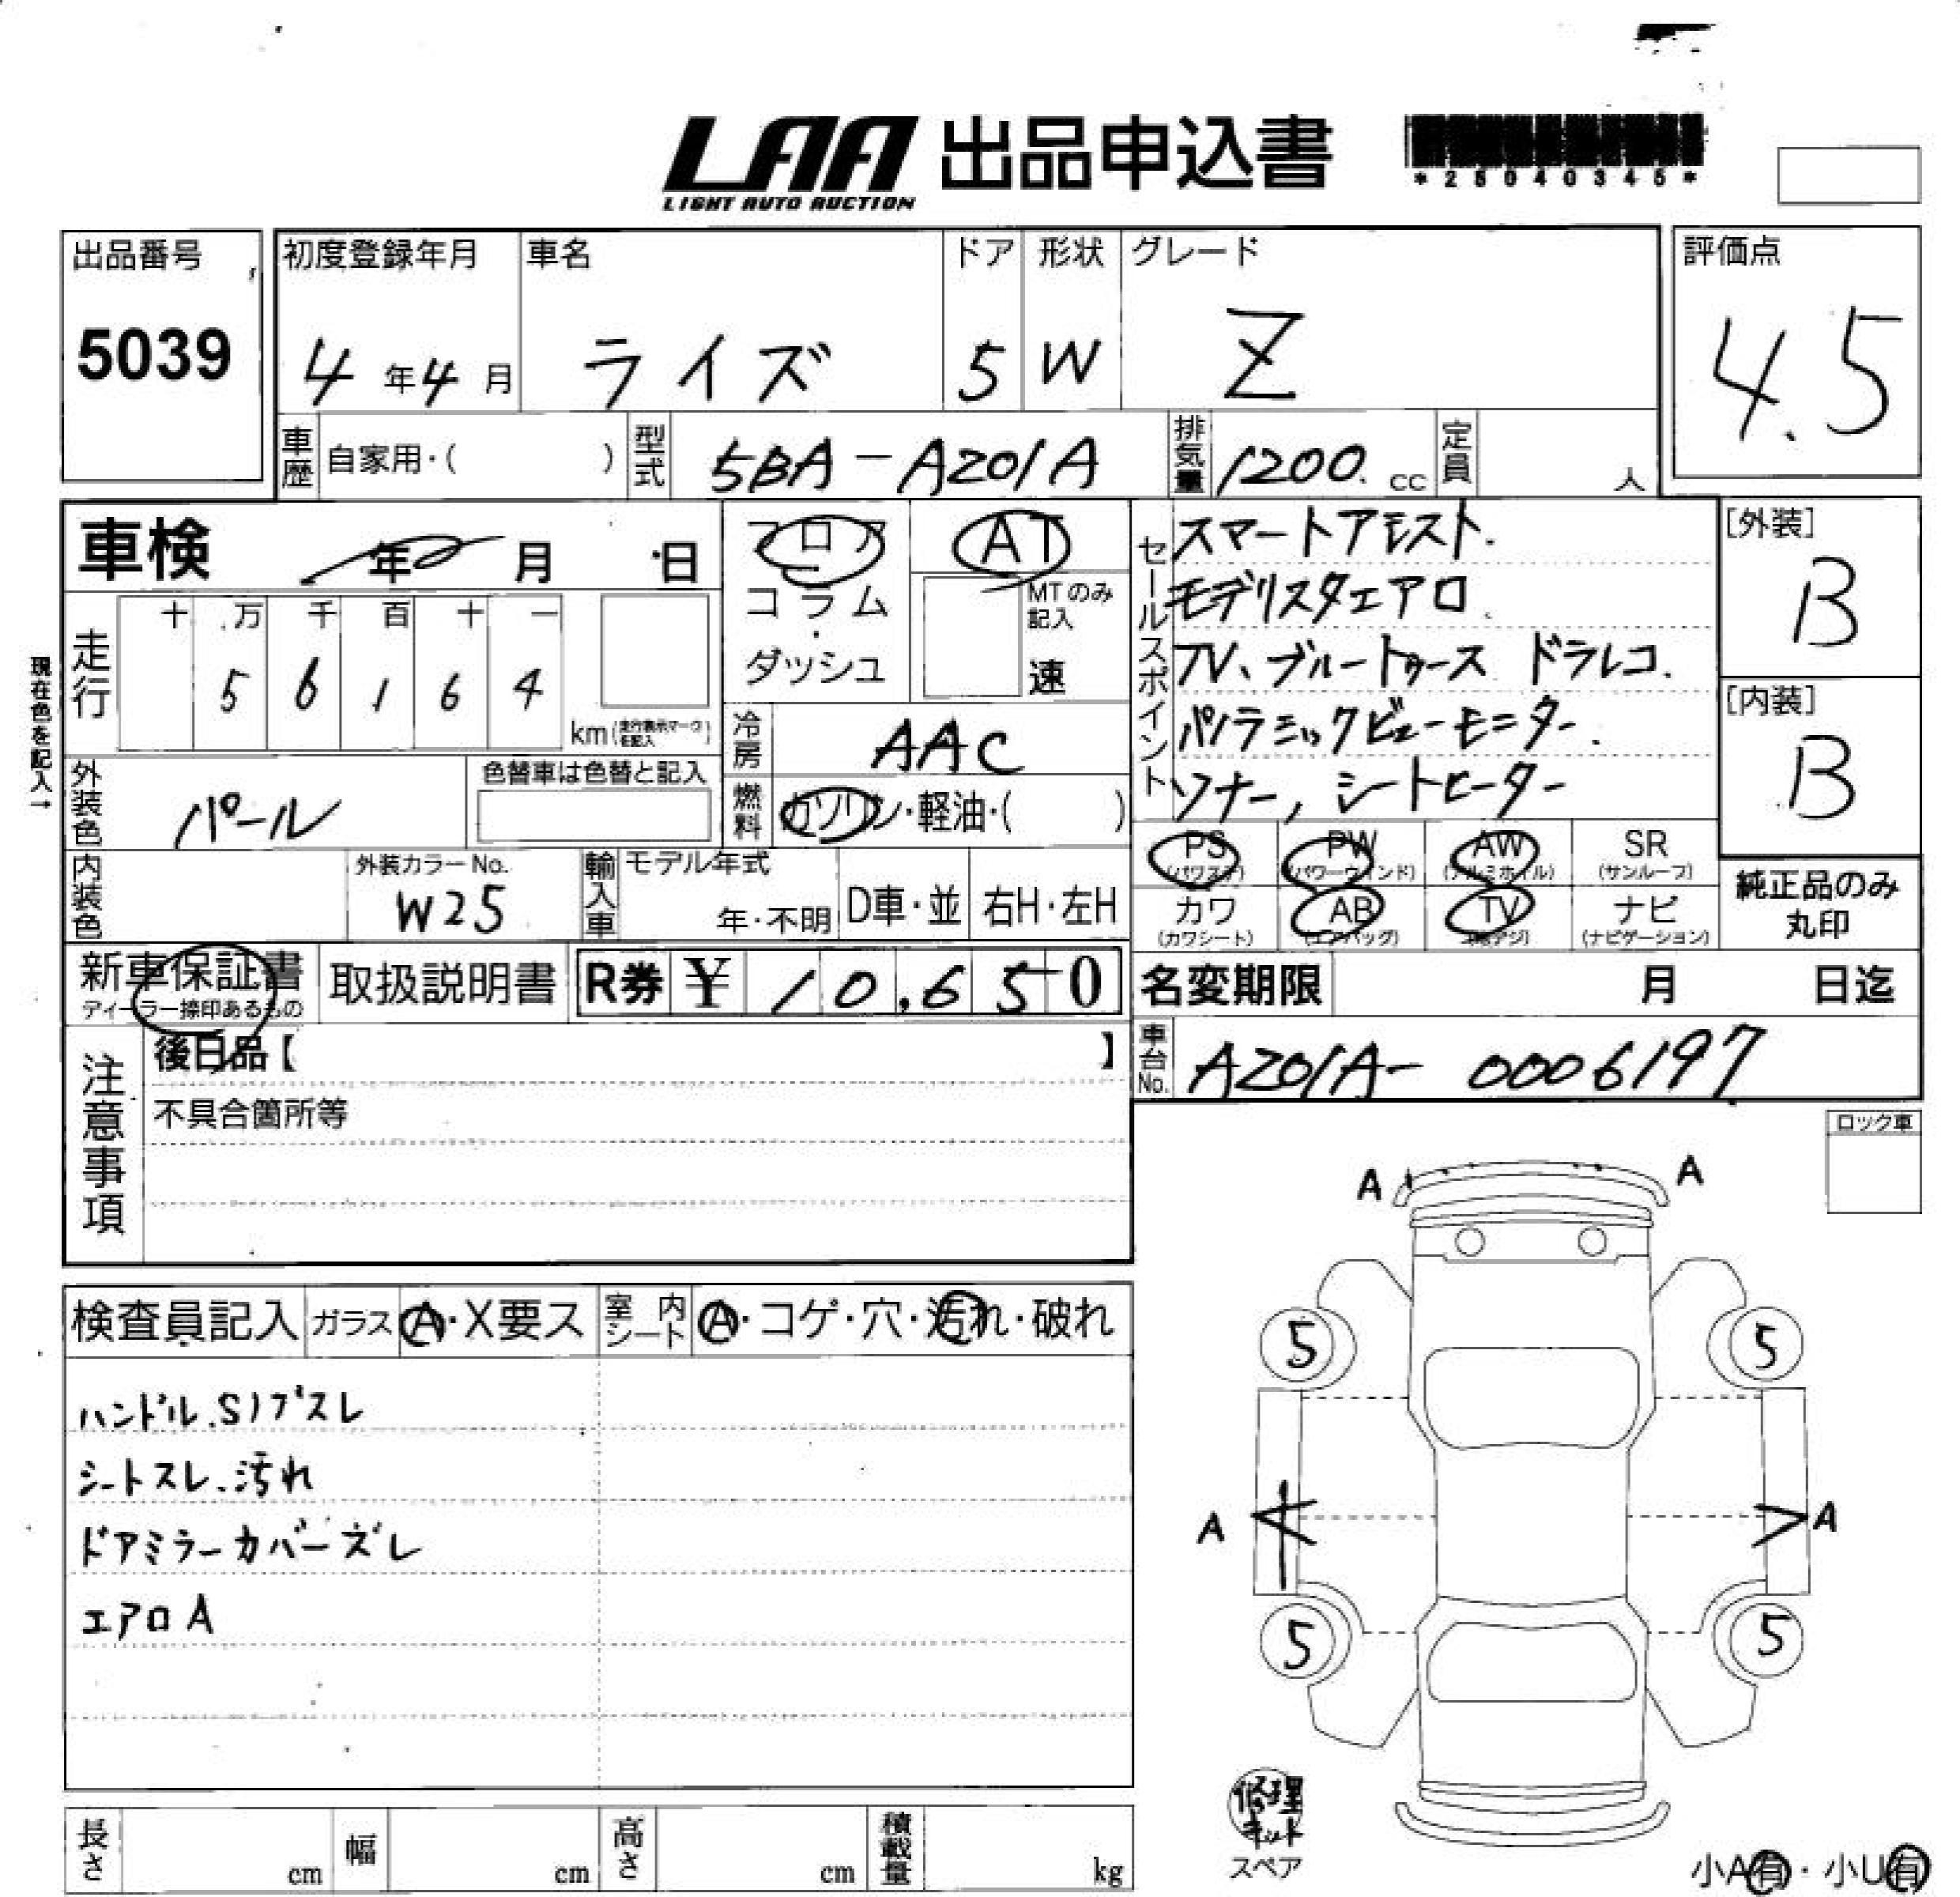 LAA 出品申込書
LIGHT AUTO AUCTION
*25040345*
出品番号
5039
初度登録年月
4年4月
車名
ライズ
ドア
5
形状
W
グレード
Z
評価点
4.5
車歴 自家用・( )
型式 5BA-A201A
排気量 1200. cc
定員 人
車検 年 月 日
フロア
コラム
・
ダッシュ
AT
MTのみ
記入
速
走行
十 万 千 百 十 一
5 6 1 6 4
km(走行表示マークを記入)
現在色を記入→
外装色 パール
色替車は色替と記入
冷房 AAC
燃料 ガソリン・軽油・( )
内装色
外装カラーNo.
W25
輸入車
モデル年式
年・不明
D車・並
右H・左H
セールスポイント
スマートアシスト.
モデリスタエアロ
TV、ブルートゥース ドラレコ.
パノラミックビューモニター.
ソナー, シートヒーター
[外装]
B
[内装]
B
PS
(パワステ)
PW
(パワーウインド)
AW
(アルミホイル)
SR
(サンルーフ)
カワ
(カワシート)
AB
(エアバッグ)
TV
(地デジ)
ナビ
(ナビゲーション)
純正品のみ
丸印
新車保証書
ディーラー捺印あるもの
取扱説明書
R券 ¥ 10,650
名変期限 月 日迄
車台No. A201A-0006197
注意事項
後日品【 】
不具合箇所等
ロック車
検査員記入
ガラス A・X要ス
室内シート A・コゲ・穴・汚れ・破れ
ハンドル.Sノブスレ
シートスレ.汚れ
ドアミラーカバーズレ
エアロA
A A
5 5
A A
5 5
修理
キット
スペア
小A有・小U有
長さ cm
幅 cm
高さ cm
積載量 kg